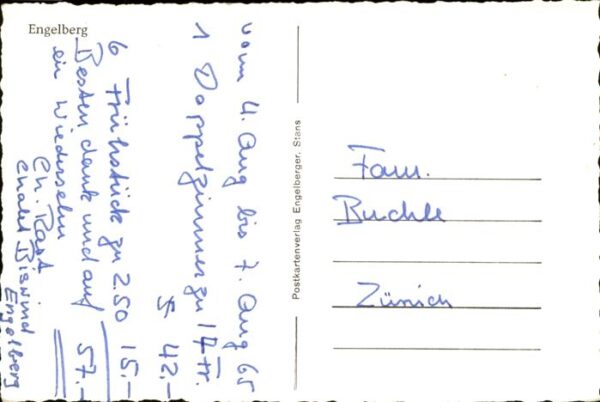 Engelberg
vom 4. Aug bis 7. Aug 65
1 Doppelzimmer zu 14 Fr.
42.–
6 Frühstück zu 2.50 15.–
Besten dank und auf 57.–
ein Wiedersehn
Ch. Rast
Chalet
Engelberg
Postkartenverlag Engelberger, Stans
Fam.
Buchle
Zürich